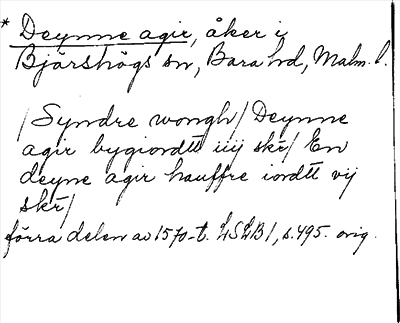 * Deynne agir, åker i
Bjärshögs sn, Bara hd, Malm. l.
/Syndre wongh/ Deynne
agir bygiordtt iiij skr/ En
deyne agir hauffre iordtt vij
skr/
förra delen av 1570-t. LSLB 1, s. 495. orig.